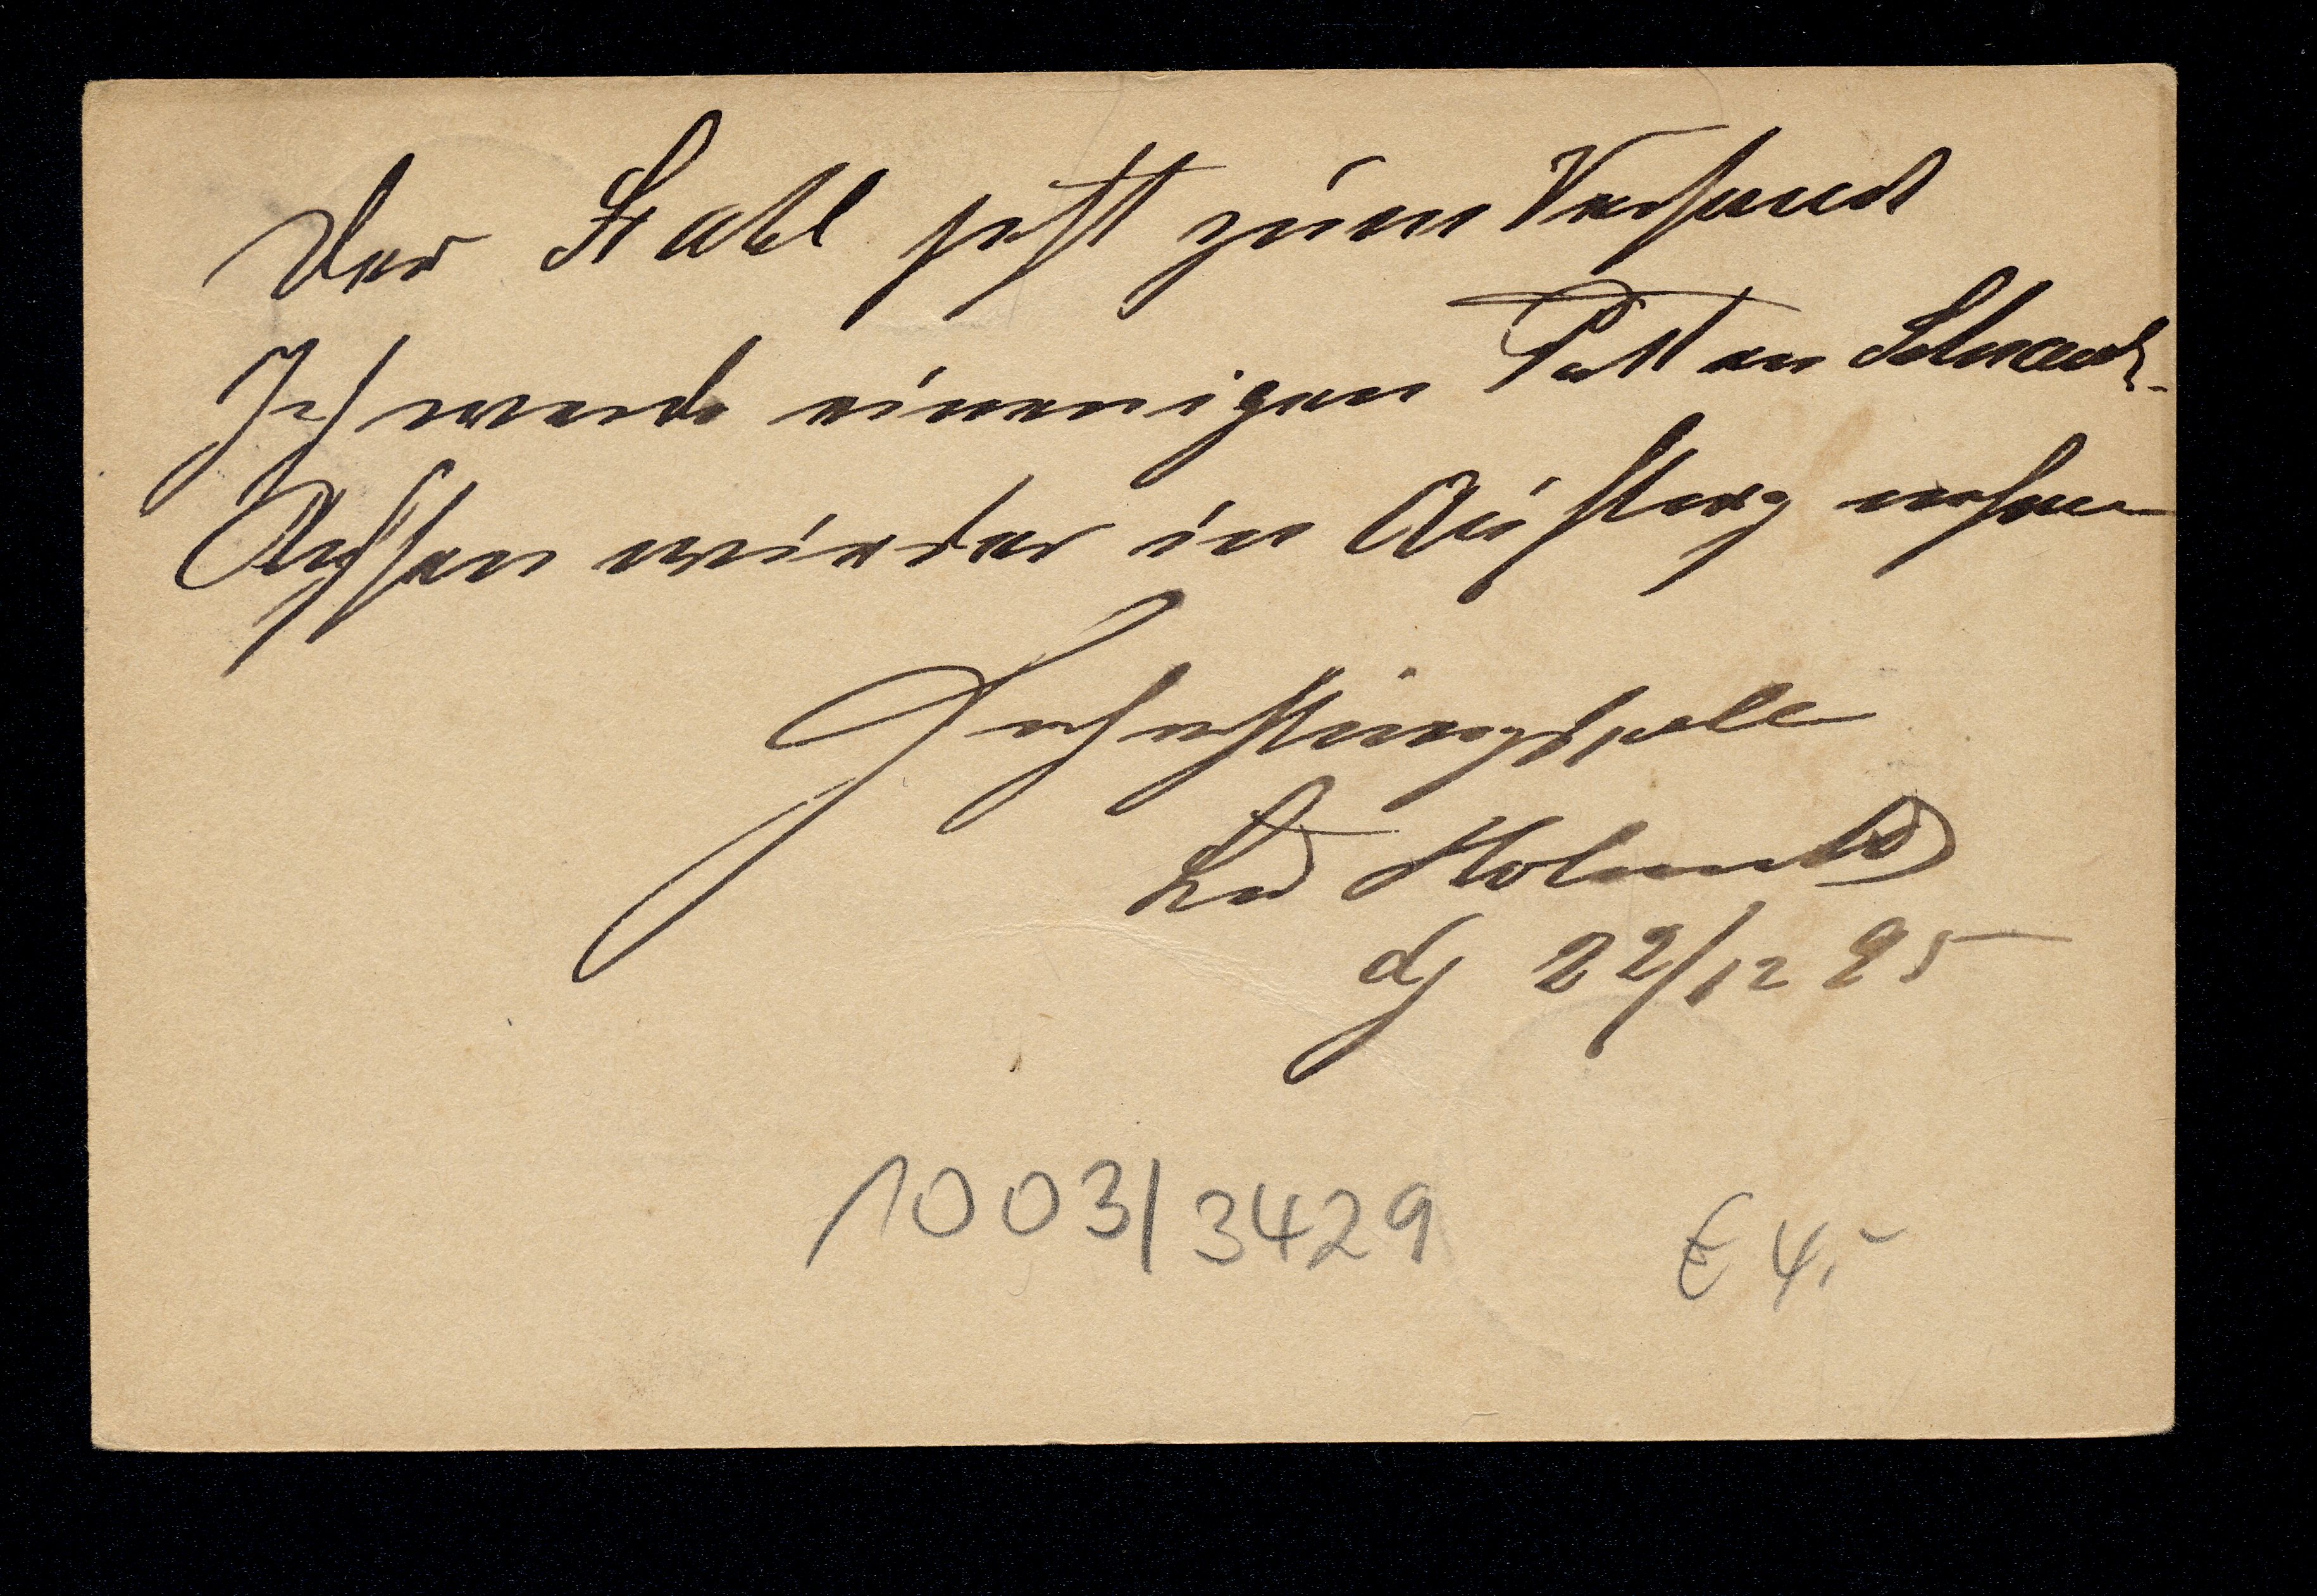 Der Stahl geht zum Versand
Ich werde einenigen Patt an
Achsen wieder in Auftrag nehmen
Hochachtungsvoll
d 22/12 95
1003/3429
€ 4,-